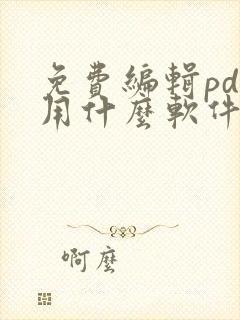 免費編輯pd
用什麼軟件
啊麼